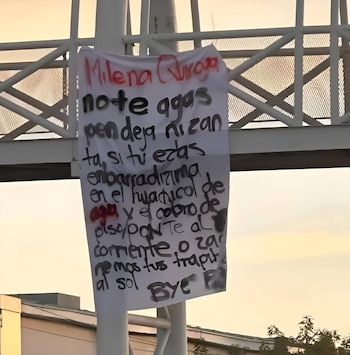 Milena Quiroga
no te agas
pendeja ni zan
ta, si tú eztas
embarradizima
en el huachicol de
agua y el cobro de
piso ponte al
corriente o zaq
remos tus trapit
al sol BYE